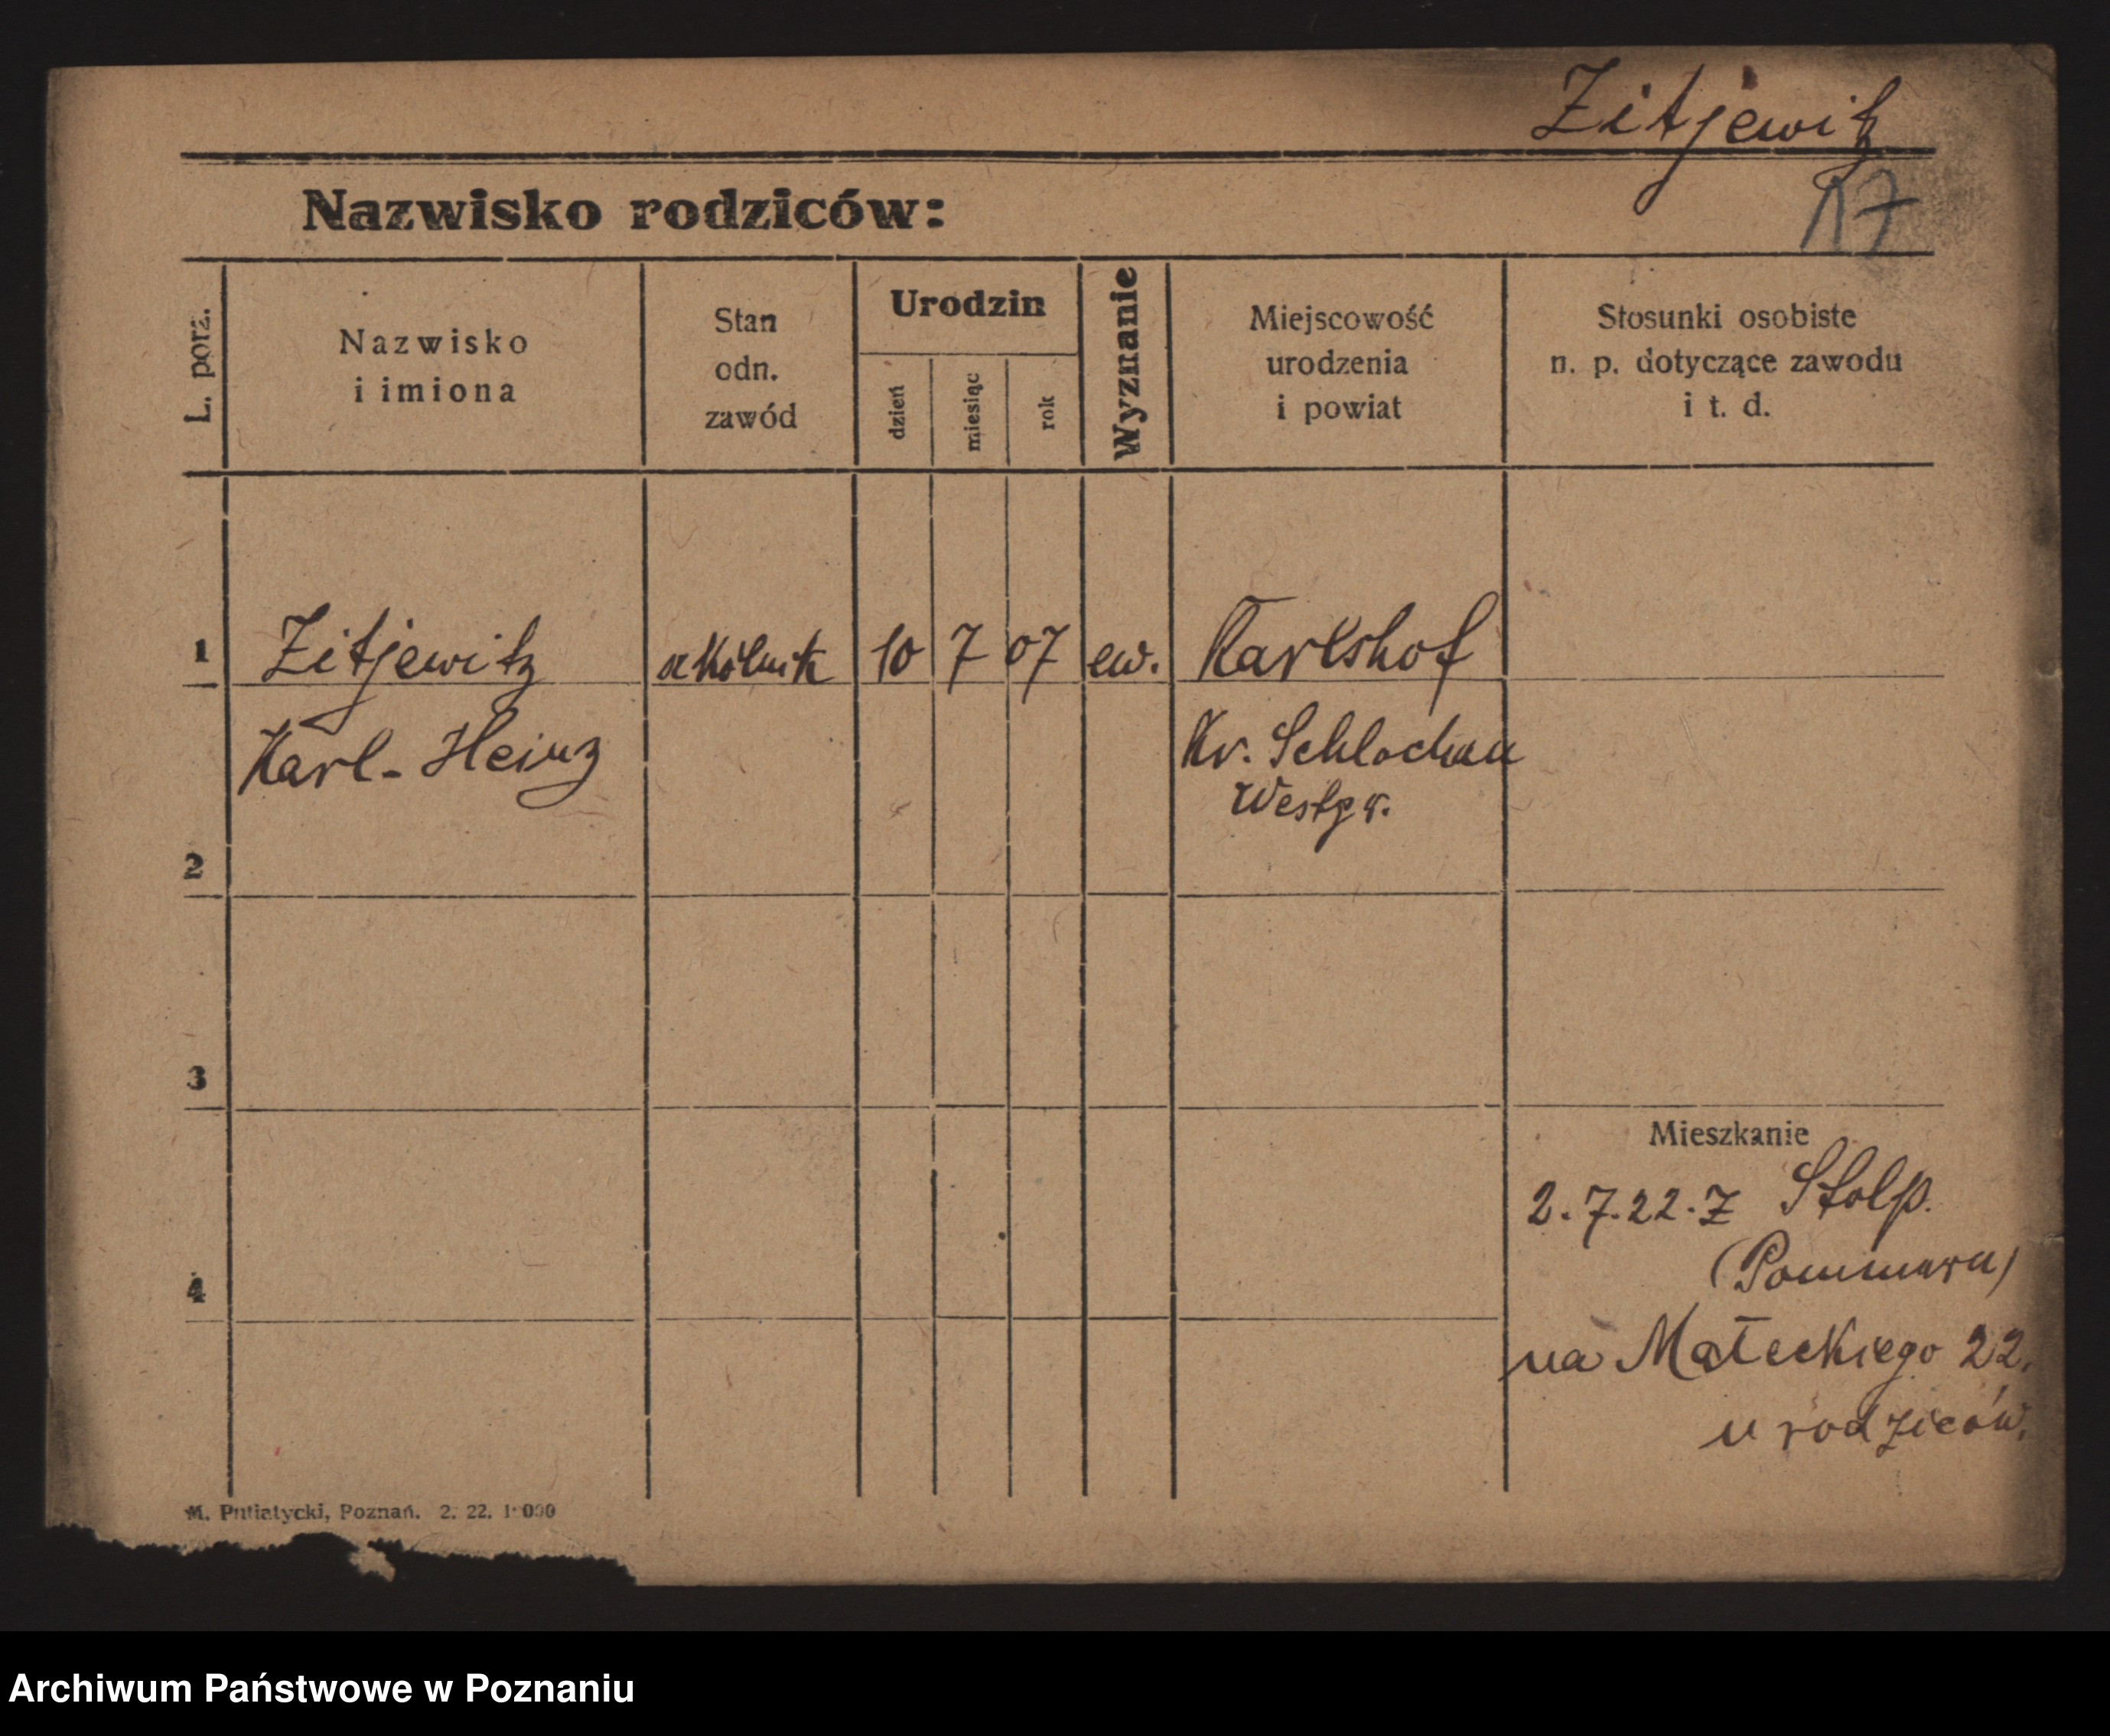 Zitjewitz
17
Nazwisko rodziców:
L. porz.
Nazwisko
i imiona
Stan
odn.
zawód
Urodzin
dzień
miesiąc
rok
Wyznanie
Miejscowość
urodzenia
i powiat
Stosunki osobiste
n. p. dotyczące zawodu
i t. d.
1 Zitjewitz 10 7 07 ew. Karlshof
Karl-Heinz Kr. Schlochau
Westpr.
2
3
Mieszkanie
2.7.22.Z Stolp.
(Pommern)
4
na Małeckiego 22.
u rodziców.
M. Putiatycki, Poznań. 2. 22.
Archiwum Państwowe w Poznaniu